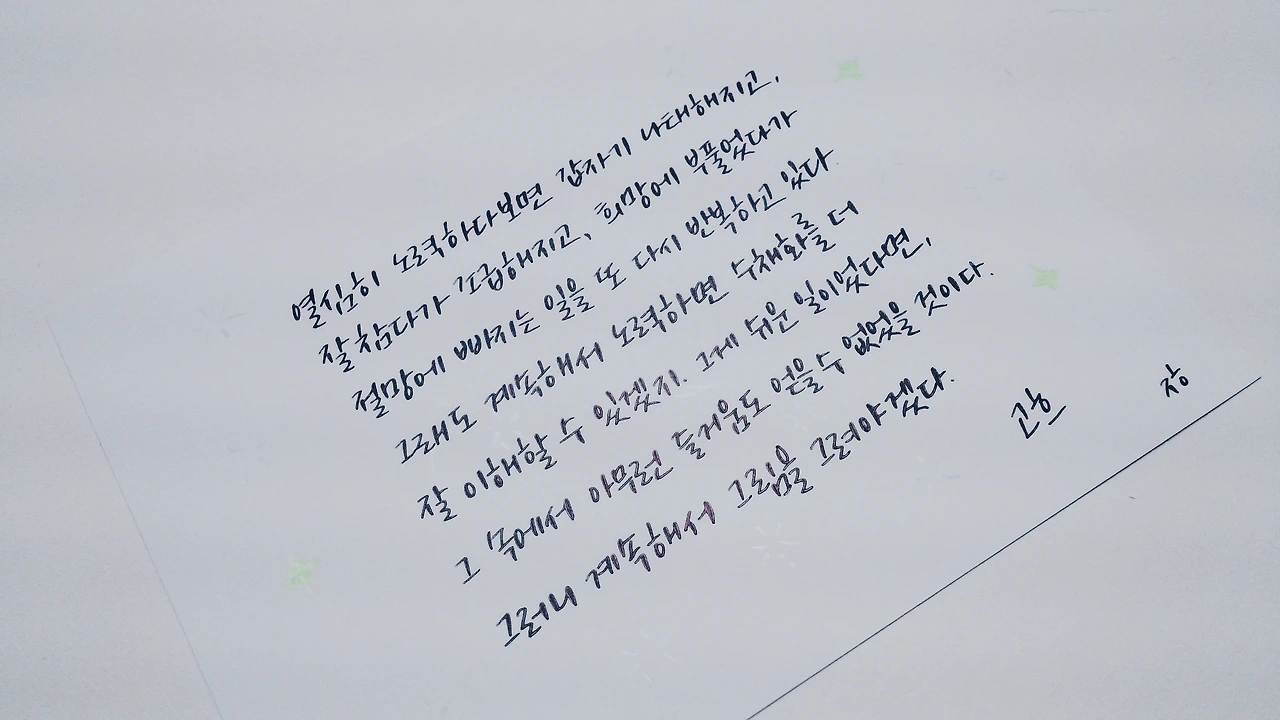 열심히 노력하다보면 갑자기 나태해지고,
잘 참다가 조급해지고, 희망에 부풀었다가
절망에 빠지는 일을 또 다시 반복하고 있다.
그래도 계속해서 노력하면 수채화를 더
잘 이해할 수 있겠지. 그게 쉬운 일이었다면,
그 속에서 아무런 즐거움도 얻을 수 없었을 것이다.
그러니 계속해서 그림을 그려야겠다.
고흐
장